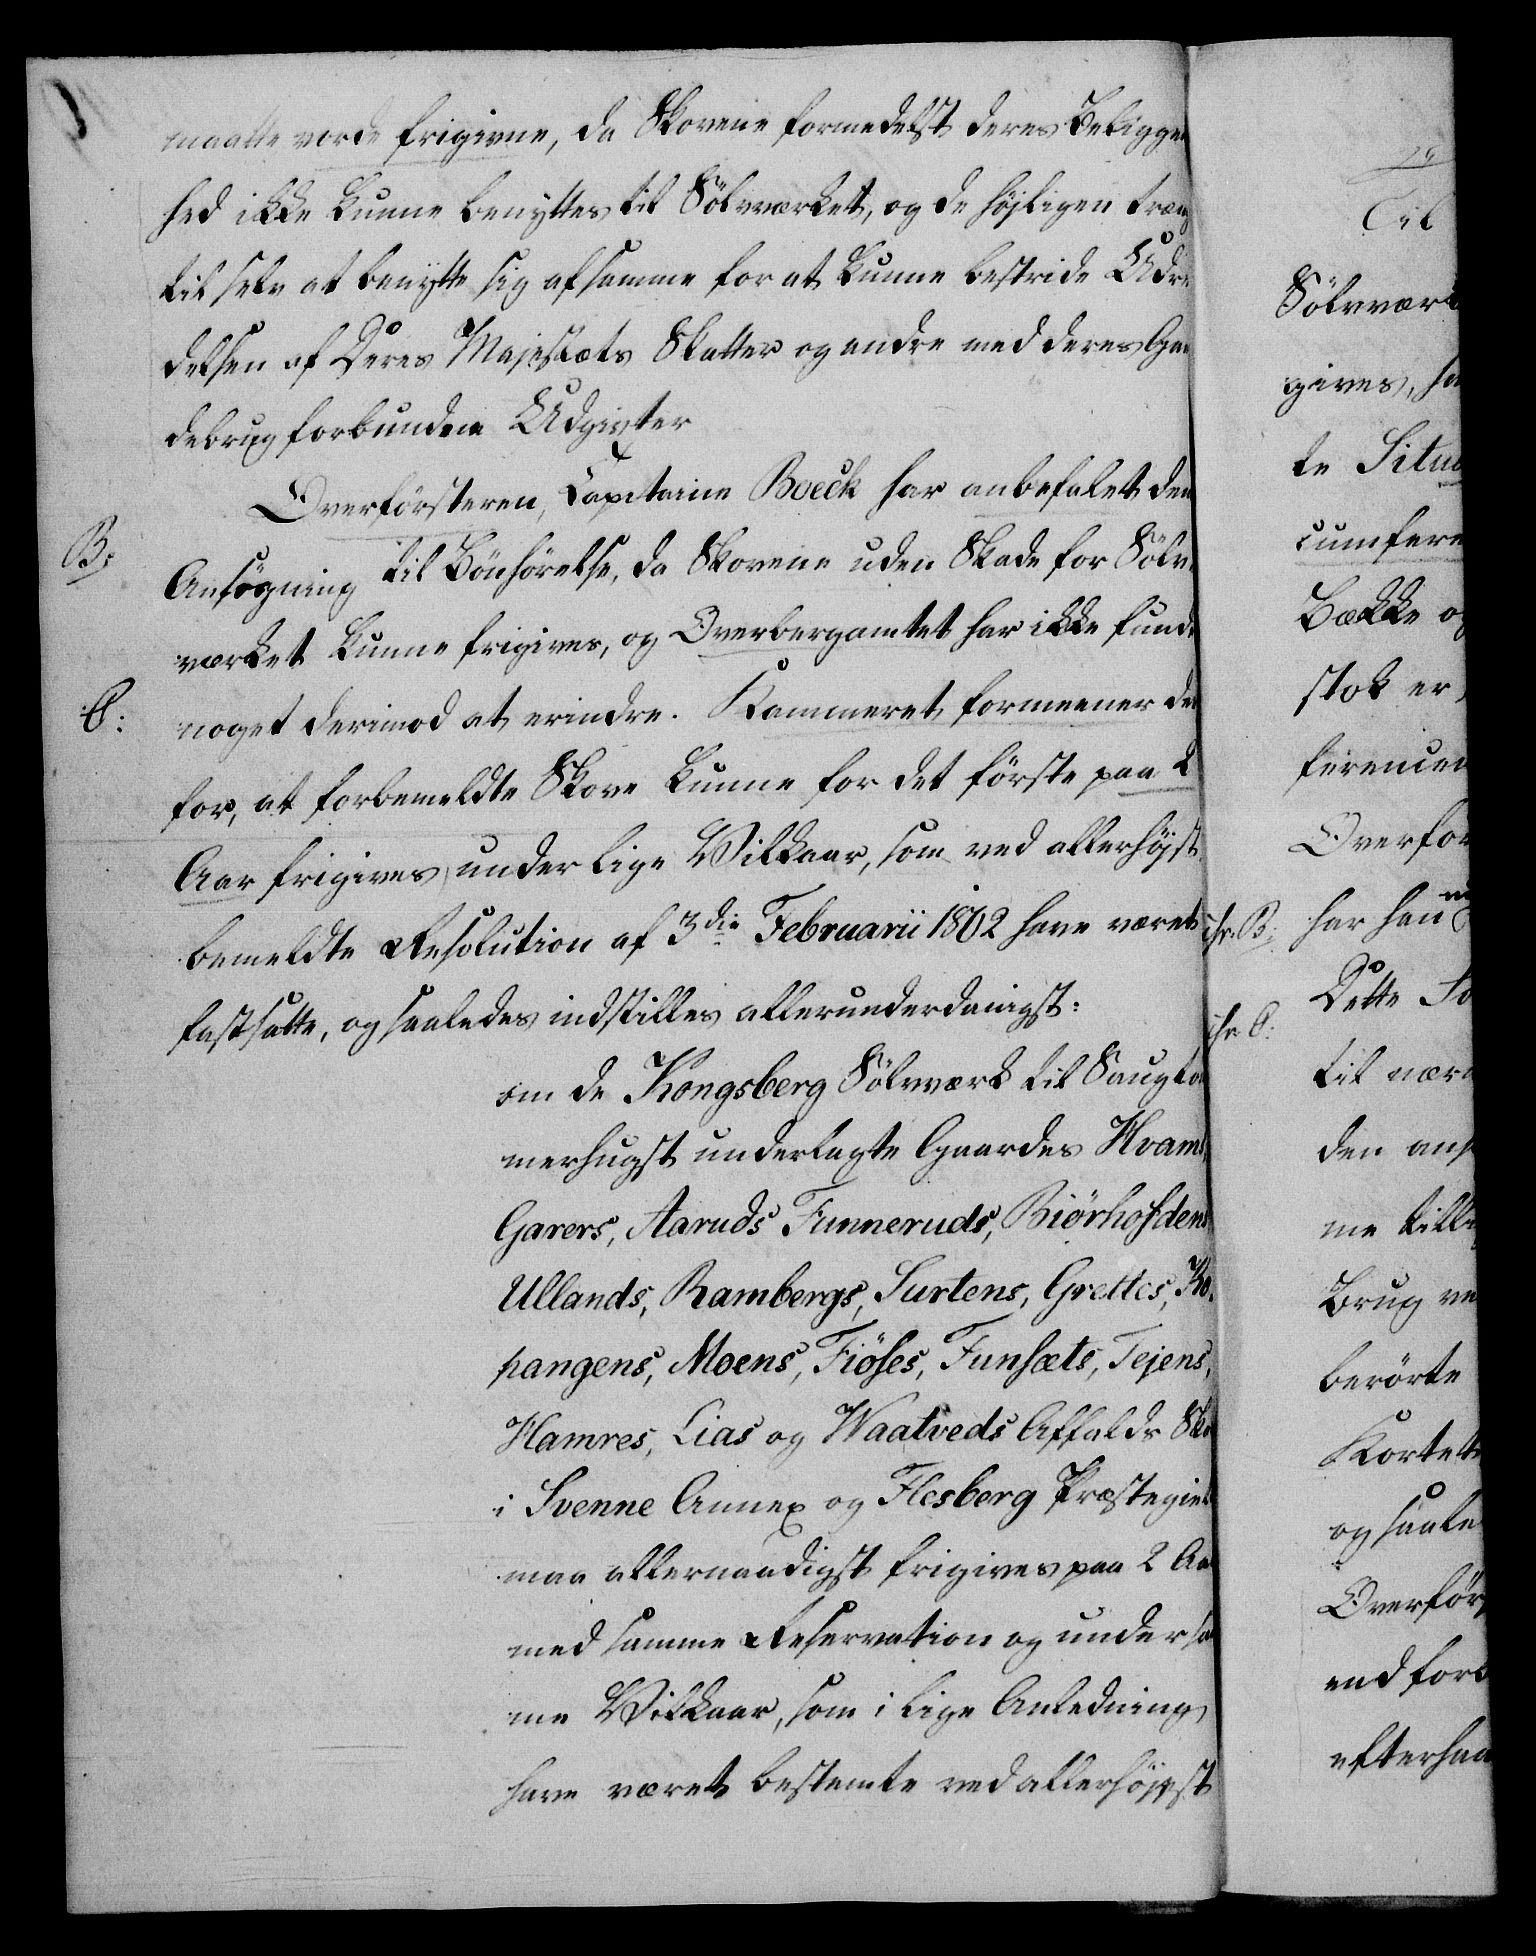 maatte vorde frigivne, da Skovene formedelst deres Beliggen
hed ikke kunne benyttes til Sölvværket, og de højligen træng
til selv at benytte sig af samme for at kunne bestride Udre
delsen af Deres Majestæts Skatter og andre med deres Gaar
debrug forbundne Udgivter
Overförsteren, Capitaine Boeck har anbefalet den
B: Ansögning til Bönhörelse, da Skovene uden Skade for Sölv
værket kunne frigives, og Overbergamtet har ikke funde
C: noget derimod at erindre. Kammeret formeener der
for, at forbemeldte Skove kunne for det förste paa 2
Aar frigives under lige Vilkaar, som ved allerhöjst
bemeldte Resolution af 3die Februarii 1802 have været
fastsatte, og saaledes indstilles allerunderdanigst:
om de Kongsberg Sölvværk til Saugtöm
merhugst underlagte Gaardes Hvams,
Garers, Aaruds Funneruds, Biörhofdens,
Ullands, Rambergs, Surtens, Grettes, Ko¬
pangens, Moens, Fiöses, Funsæts, Tejens,
Hamres, Lias og Waatveds Affalds Sko
i Svenne Annex og Flesberg Præstegiel
maa allernaadigst frigives paa 2 Aar
med samme Reservation og under sam
me Vilkaar, som i lige Anledning
have været bestemte ved allerhöjst
Til
Sölvværk
gives, ha
te Situa
cumferen
Bække og
stok er
ferencen
Overfor
hr. B: har han
Dette
hr. C:
til nærm
den ans
me till
Brug ve
berörte
Kortet
og saale
Overför
end for
efterhaa